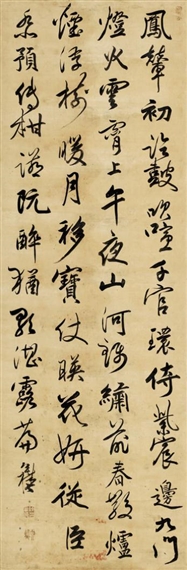 鳳輦初臨鼓吹喧千官環侍紫宸邊九門
燈火雲霄上午夜山河錦繡前春散爐
煙浮樹暖月移寶仗映花妍從臣
忝預傳柑讌既醉猶歌湛露篇